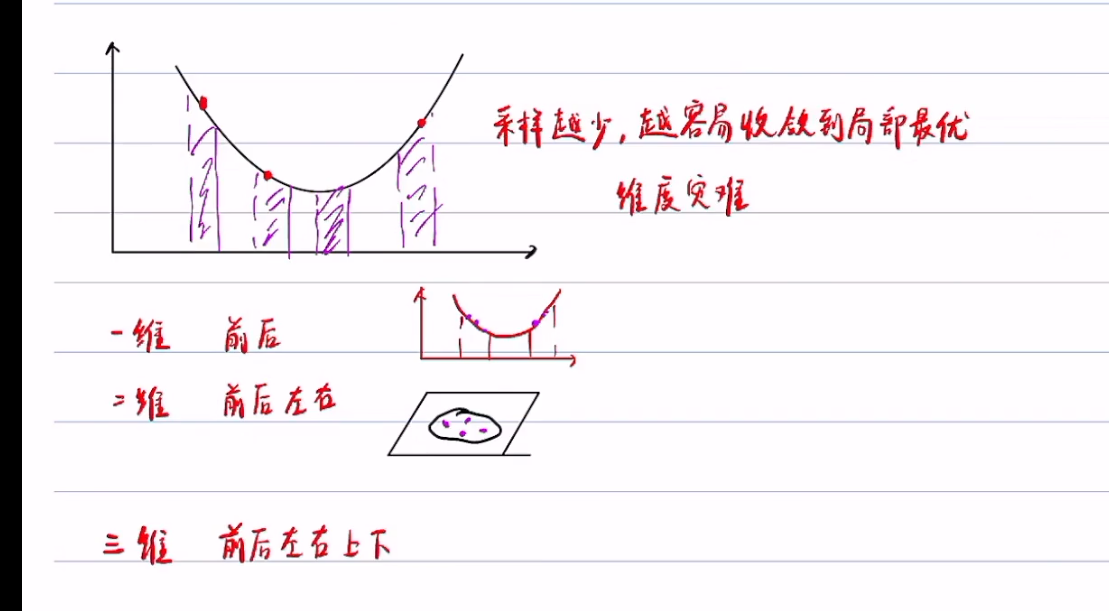 采样越少，越容易收敛到局部最优
维度灾难
一维 前后
二维 前后左右
三维 前后左右上下